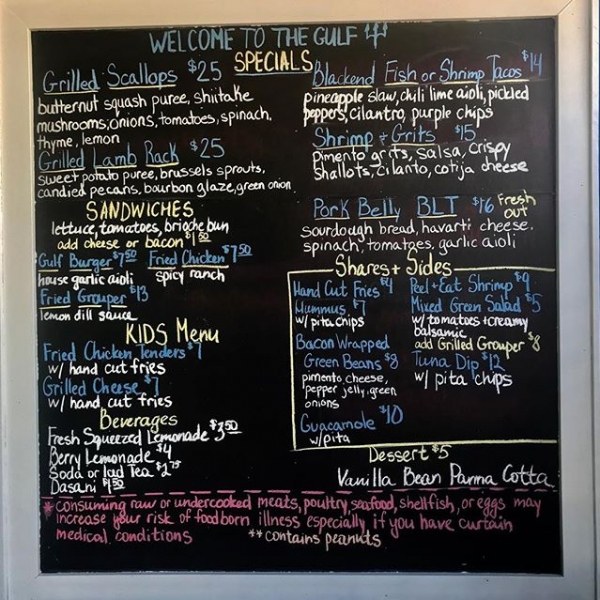 WELCOME TO THE GULF
SPECIALS
Grilled Scallops $25
butternut squash puree, shiitake
mushrooms, onions, tomatoes, spinach,
thyme, lemon
Grilled Lamb Rack $25
sweet potato puree, brussels sprouts,
candied pecans, bourbon glaze, green onion
Blackend Fish or Shrimp Tacos $14
pineapple slaw, chili lime aioli, pickled
peppers, cilantro, purple chips
Shrimp + Grits $15
pimento grits, salsa, crispy
shallots, cilanto, cotija cheese
Pork Belly BLT $16 Fresh
out
sourdough bread, havarti cheese.
spinach, tomatoes, garlic aioli
SANDWICHES
lettuce, tomatoes, brioche bun
add cheese or bacon $1.50
Gulf Burger $7.50 Fried Chicken $7.50
house garlic aioli spicy ranch
Fried Grouper $13
lemon dill sauce
KIDS Menu
Fried Chicken Tenders $7
w/ hand cut fries
Grilled Cheese $7
w/ hand cut fries
Beverages
Fresh Squeezed Lemonade $3.50
Berry Lemonade $4
Soda or Iced Tea $2.75
Dasani $1.50
Shares + Sides
Hand Cut Fries $4
Hummus $7
w/ pita chips
Bacon Wrapped
Green Beans $8
pimento cheese,
pepper jelly, green
onions
Guacamole $10
w/ pita
Peel + Eat Shrimp $9
Mixed Green Salad $5
w/ tomatoes + creamy
balsamic
add Grilled Grouper $8
Tuna Dip $12
w/ pita chips
Dessert $5
Vanilla Bean Panna Cotta
* consuming raw or undercooked meats, poultry, seafood, shellfish, or eggs may
increase your risk of foodborn illness especially if you have curtain
medical conditions **contains peanuts